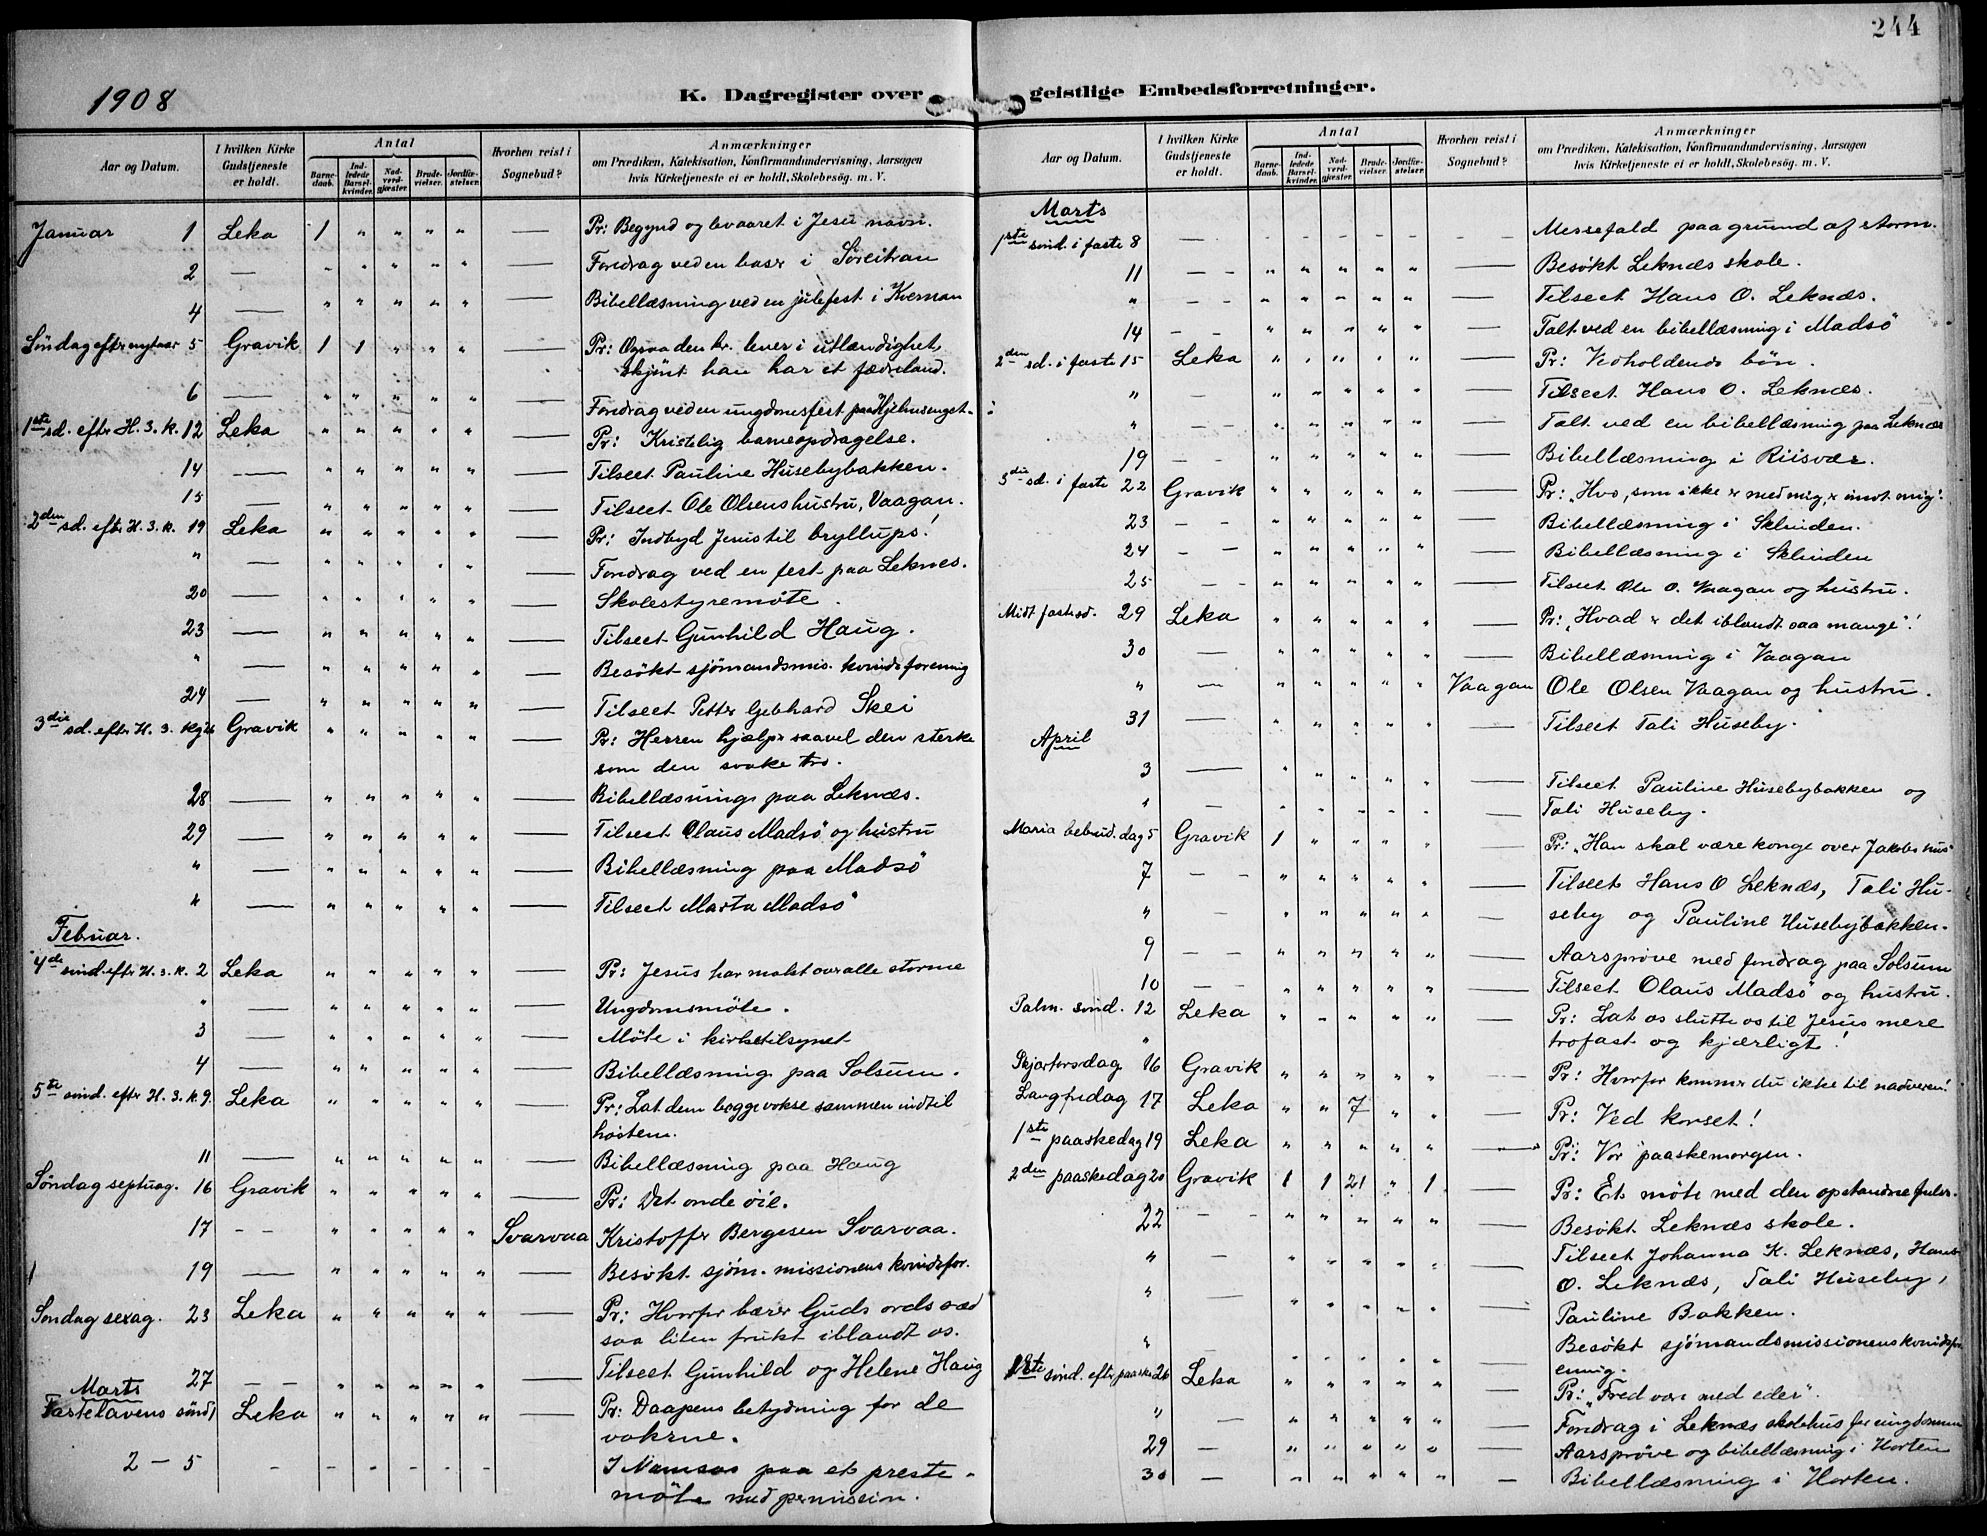 244
1908
K. Dagregister over geistlige Embedsforretninger.
Aar og Datum.
I hvilken Kirke Gudstjeneste er holdt.
Antal
Barnedaab.
Indledede Barselkvinder.
Nadverdgjæster.
Brudevielser.
Jordfæstelser.
Hvorhen reist i Sognebud?
Anmærkninger
om Prædiken, Katekisation, Konfirmandundervisning, Aarsagen
hvis Kirketjeneste ei er holdt, Skolebesøg. m. V.
Januar 1 Leka 1 " " " " — Pr: Begynd og bevaaret i Jesu navn.
2 — " " " " " — Foredrag ved en basar i
4 " " " " " — Bibellæsning ved en julefest i Kvernan
Søndag efter nytaar 5 Gravik 1 1 " " " Pr: Ogsaa den kr. lever i utlændighet,
skjønt han har et fædreland.
6 — " " " " " — Foredrag ved en ungdomsfest paa
1ste sd. eftr H. 3. K. 12 Leka " " " " " — Pr: Kristelig barneopdragelse.
14 — " " " " " — Tilseet Pauline Husebybakken.
15 — " " " " " — Tilseet Ole Olsens hustru, Vaagan.
2den sd. eftr H. 3. K. 19 Leka " " " " " — Pr: Indbyd Jesus til bryllups!
" — " " " " " — Foredrag ved en fest paa Leknes.
20 — " " " " " — Skolestyremöte.
23 — " " " " " — Tilseet Gunhild Haug.
" — " " " " " — Besøkt sjömandsmis. kvindeforening
24 — " " " " " — Tilseet Petter Gebhard Skei
3die sd. eftr H. 3. K 26 Gravik " " " " " — Pr: Herren hjælpr saavel den sterke
som den svake tro.
28 — " " " " " — Bibellæsning paa Leknæs.
29 — " " " " " — Tilseet Olaus Madsö og hustru
" — " " " " " — Bibellæsning paa Madsö
" — " " " " " — Tilseet Marta Madsö
Februar.
4de sönd. eftr H. 3. K. 2 Leka " " " " " — Pr: Jesus har makt over alle storme
" — " " " " " — Ungdomsmöte.
3 — " " " " " — Möte i kirketilsynet
4 — " " " " " — Bibellæsning paa Solsum.
5te sönd. eftr H. 3. K 9. Leka " " " " " — Pr: Lat dem begge vokse sammen indtil
høsten.
11 — " " " " " — Bibellæsning paa Haug
Søndag septuag. 16 Gravik " " " " " — Pr: Det onde öie.
17 – – " " " " " Svarvaa Kristoffr Bergesen Svarvaa.
19 — " " " " " — Besökt sjöm. missionens kvindefor.
Søndag sexag. 23 Leka " " " " " — Pr: Hvorfor bærer Guds ords sæd
saa liten frukt iblandt os.
27 – – " " " " " — Tilseet Gunhild og Helene Haug
Marts
Fastelavens sönd 1 Leka " " " " " — Pr: Daapens betydning for de
vokrne.
2 – 5 – – – – – – – I Namsos paa et preste-
möte med permission.
Aar og Datum.
I hvilken Kirke Gudstjeneste er holdt.
Antal
Barnedaab.
Indledede Barselkvinder.
Nadverdgjæster.
Brudevielser.
Jordfæstelser.
Hvorhen reist i Sognebud?
Anmærkninger
om Prædiken, Katekisation, Konfirmandundervisning, Aarsagen
hvis Kirketjeneste ei er holdt, Skolebesøg. m. V.
Marts
1ste sönd. i faste 8 — – – – – – – – Messefald paa grund af storm.
11 – – " " " " " — Besökt Leknæs skole.
" – – " " " " " — Tilseet Hans O. Leknæs.
14 – – " " " " " — Talt ved en bibellæsning i Madsö
2den sd. i faste 15 Leka " " " " " — Pr: Vedholdende bön.
" – " " " " " — Tilseet Hans O. Leknæs.
" – " " " " " — Talt ved en bibellæsning paa Leknæs
19 – – " " " " " — Bibellæsning i Riisvær.
3die sd. i faste 22 Gravik " " " " " — Pr: "Hvo, som ikke er med mig, er imot mig".
23 – – " " " " " — Bibellæsning i Sklinden.
24 – – " " " " " — Bibellæsning i Sklinden
25 – – " " " " " — Tilseet Ole O. Vaagan og hustru.
Midtfastesd. 29 Leka " " " " " — Pr: "Hvad er det iblandt saa mange"!
30 — " " " " " — Bibellæsning i Vaagan
" — " " " " " Vaagan Ole Olsen Vaagan og hustru.
31 — " " " " " — Tilseet Tali Huseby.
April
3 — " " " " " — Tilseet Pauline Husebybakken og
" – " " " " " — Tali Huseby.
Maria bebud. dag 5 Gravik 1 " " " " — Pr: "Han skal være konge over Jakobs hus"
7 – – " " " " " — Tilseet Hans O Leknæs, Tali Hu-
" – " " " " " — seby og Pauline Husebybakken.
9 – " " " " " — Aarspröve med foredrag paa Solsum
10 – – " " " " " — Tilseet Olaus Madsö og hustru.
Palm. sönd. 12 Leka " " " " " — Pr: Lat os slutte os til Jesus mere
" trofast og kjærligt!
Skjærtorsdag 16 Gravik " " " " " — Pr: Hvorfor kommer du ikke til nadveren!
Langfredag 17 Leka " " 7 " " — Pr: Ved korset!
1ste paaskedag 19 Leka " " " " " — Pr: Vor paaskemorgen.
2den paaskedag 20 Gravik 1 1 21 " 1 — Pr: Et möte med den opstandne frelser.
22 – – " " " " " — Besökt Leknæs skole.
" – " " " " " — Tilseet Johanna K. Leknæs, Hans
O. Leknæs, Tali Huseby,
" – " " " " " — Pauline Bakken.
" – " " " " " — Besökt sjömandsmissionens kvindefor
ening.
1ste sönd. eftr paaske 26 Leka " " " " " — Pr: "Fred være med eder".
" – " " " " " — Foredrag i Leknæs skolehus for ungdommen
29 – " " " " " — Aarspröve og bibellæsning i Horten
30 – " " " " " — Bibellæsning i Horten.